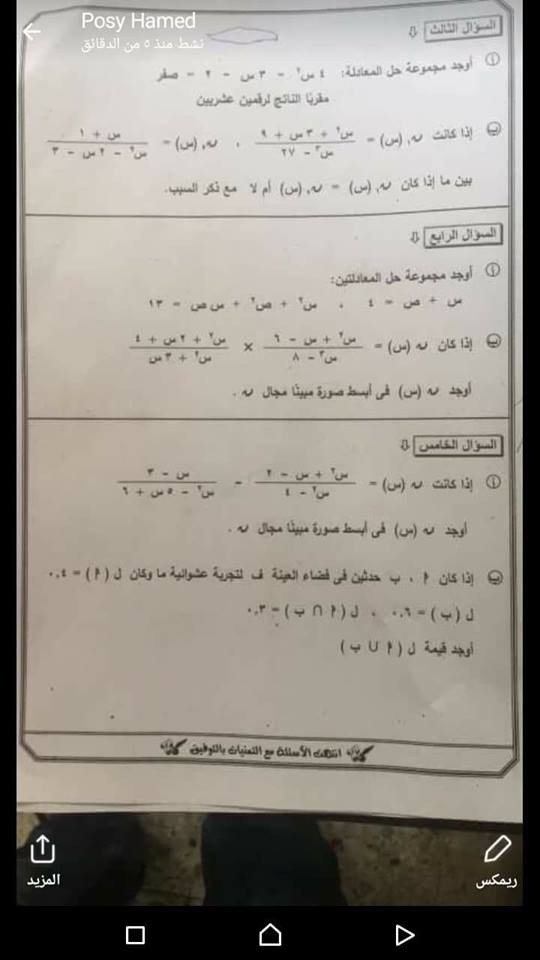 Posy Hamed
نشط منذ ٥ من الدقائق
السؤال الثالث
أ أوجد مجموعة حل المعادلة: ٤ س٢ - ٣ س - ٢ = صفر
مقربًا الناتج لرقمين عشريين
ب إذا كانت ن١(س) = (س٢ + ٣ س + ٩) / (س٣ - ٢٧) ، ن٢(س) = (س + ١) / (س٢ - ٢ س - ٣)
بين ما إذا كان ن١(س) = ن٢(س) أم لا مع ذكر السبب.
السؤال الرابع
أ أوجد مجموعة حل المعادلتين:
س + ص = ٤ ، س٢ + ص٢ + س ص = ١٣
ب إذا كان ن(س) = (س٢ + س - ٦) / (س٣ - ٨) × (س٢ + ٢ س + ٤) / (س٢ + ٣ س)
أوجد ن(س) فى أبسط صورة مبينًا مجال ن .
السؤال الخامس
أ إذا كانت ن(س) = (س٢ + س - ٢) / (س٢ - ٤) - (س - ٣) / (س٢ - ٥ س + ٦)
أوجد ن(س) فى أبسط صورة مبينًا مجال ن .
ب إذا كان أ ، ب حدثين فى فضاء العينة ف لتجربة عشوائية ما وكان ل(أ) = ٠.٤
ل(ب) = ٠.٦ ، ل(أ ∩ ب) = ٠.٣
أوجد قيمة ل(أ ∪ ب)
انتهت الأسئلة مع التمنيات بالتوفيق
المزيد
ريمكس